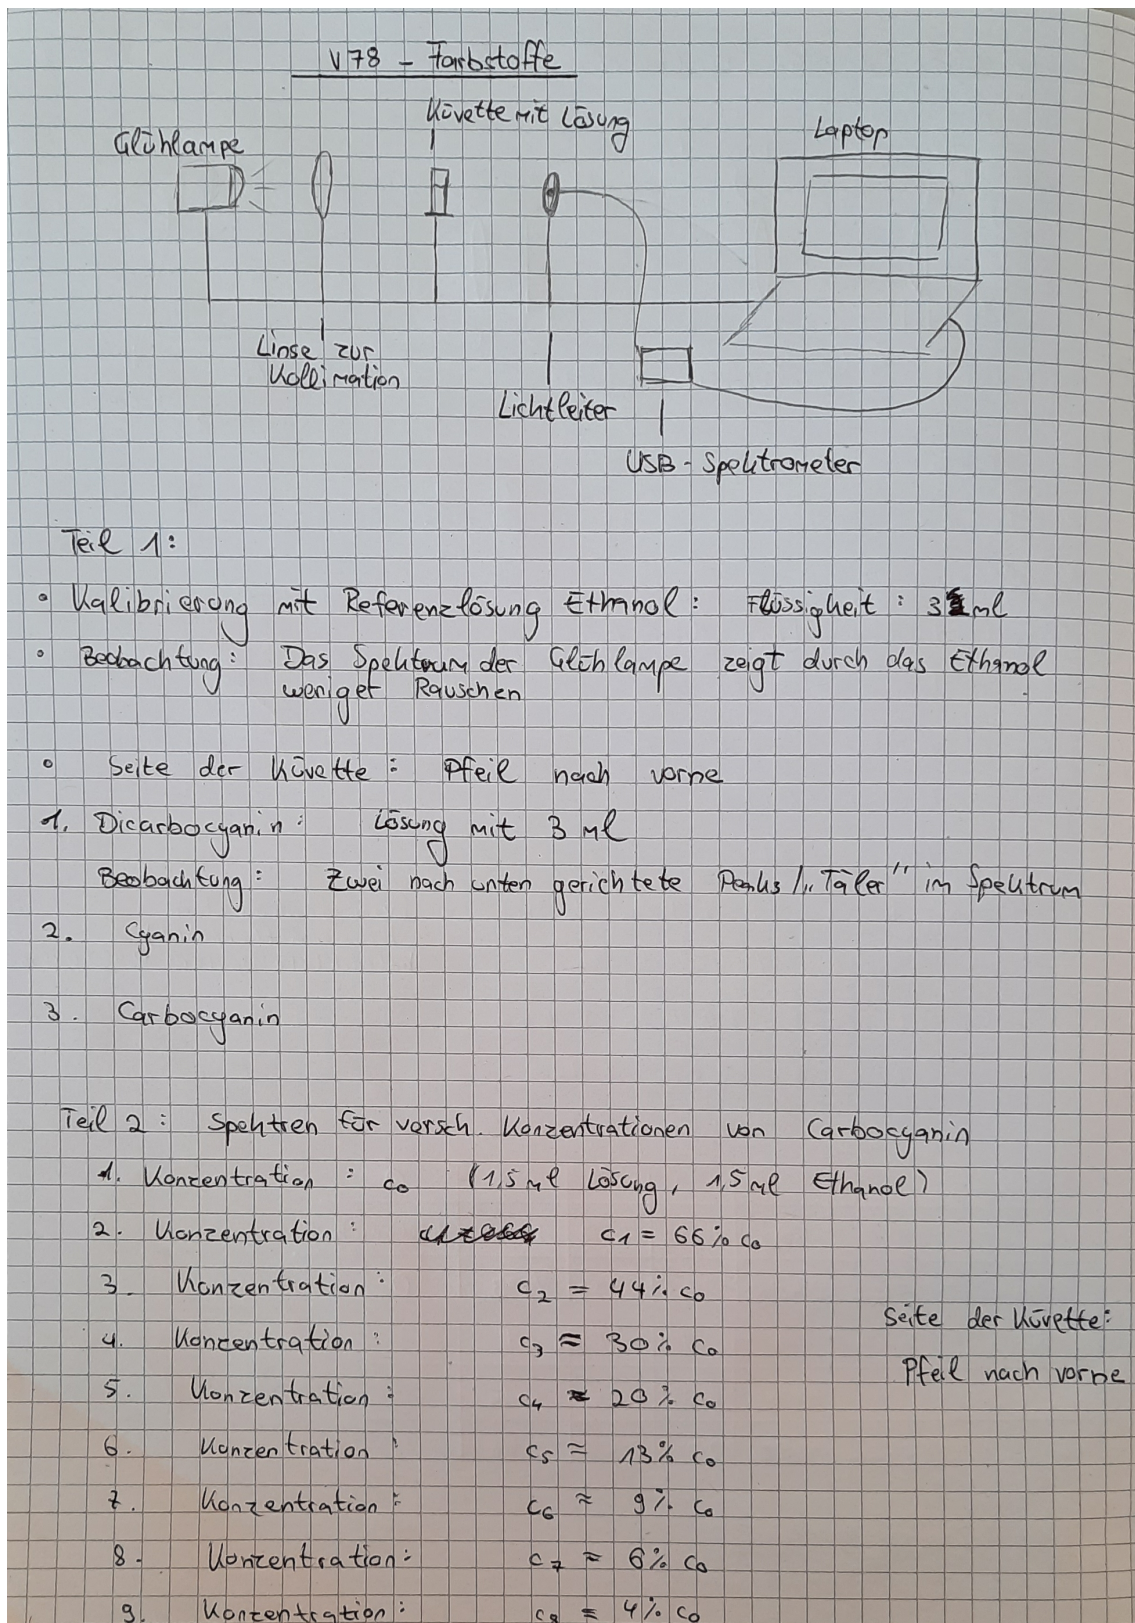 V78 - Farbstoffe
Küvette mit Lösung
Laptop
Glühlampe
Linse zur
Kollimation
Lichtleiter
USB-Spektrometer
Teil 1:
• Kalibrierung mit Referenzlösung Ethanol: Flüssigkeit: 3 ml
• Beobachtung: Das Spektrum der Glühlampe zeigt durch das Ethanol
weniger Rauschen
• Seite der Küvette: Pfeil nach vorne
1. Dicarbocyanin: Lösung mit 3 ml
Beobachtung: Zwei nach unten gerichtete Peaks/„Täler" im Spektrum
2. Cyanin
3. Carbocyanin
Teil 2: Spektren für versch. Konzentrationen von Carbocyanin
1. Konzentration: c0 (1,5 ml Lösung, 1,5 ml Ethanol)
2. Konzentration: c1 = 66% c0
3. Konzentration: c2 = 44% c0
Seite der Küvette:
4. Konzentration: c3 ≈ 30% c0
Pfeil nach vorne
5. Konzentration: c4 ≈ 20% c0
6. Konzentration: c5 ≈ 13% c0
7. Konzentration: c6 ≈ 9% c0
8. Konzentration: c7 ≈ 6% c0
9. Konzentration: c8 ≈ 4% c0